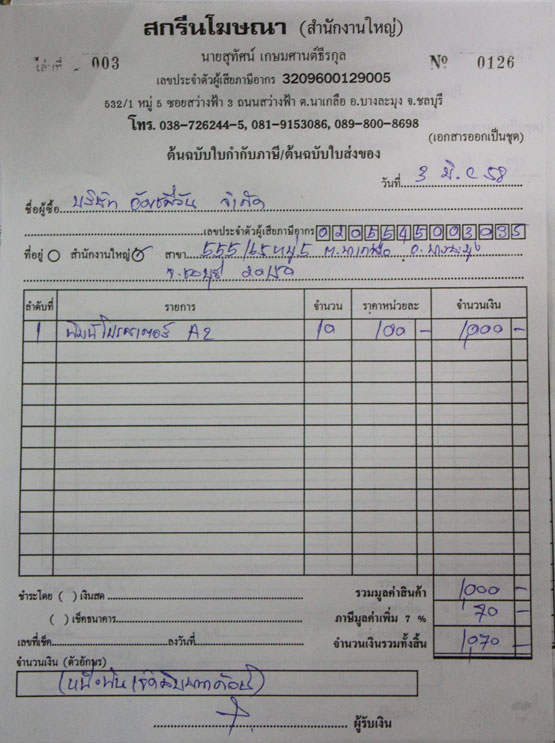 สกรีนโฆษณา (สำนักงานใหญ่)
นายสุทัศน์ เกษมศานต์ธีรกุล
เล่มที่ 003 Nº 0126
เลขประจำตัวผู้เสียภาษีอากร 3209600129005
532/1 หมู่ 5 ซอยสว่างฟ้า 3 ถนนสว่างฟ้า ต.นาเกลือ อ.บางละมุง จ.ชลบุรี
โทร. 038-726244-5, 081-9153086, 089-800-8698
(เอกสารออกเป็นชุด)
ต้นฉบับใบกำกับภาษี/ต้นฉบับใบส่งของ
วันที่ 3 มิ.ย 58
ชื่อผู้ซื้อ บริษัท จำกัด
เลขประจำตัวผู้เสียภาษีอากร 0205545003035
ที่อยู่ สำนักงานใหญ่ สาขา 555/65 หมู่ 5 ต.นาเกลือ อ.บางละมุง
จ.ชลบุรี 20150
ลำดับที่ รายการ จำนวน ราคาหน่วยละ จำนวนเงิน
1 A2 10 100 - 1,000 -
ชำระโดย ( ) เงินสด รวมมูลค่าสินค้า 1,000 -
( ) เช็คธนาคาร ภาษีมูลค่าเพิ่ม 7 % 70 -
เลขที่เช็ค ลงวันที่ จำนวนเงินรวมทั้งสิ้น 1,070 -
จำนวนเงิน (ตัวอักษร)
(หนึ่งพันเจ็ดสิบบาทถ้วน)
ผู้รับเงิน